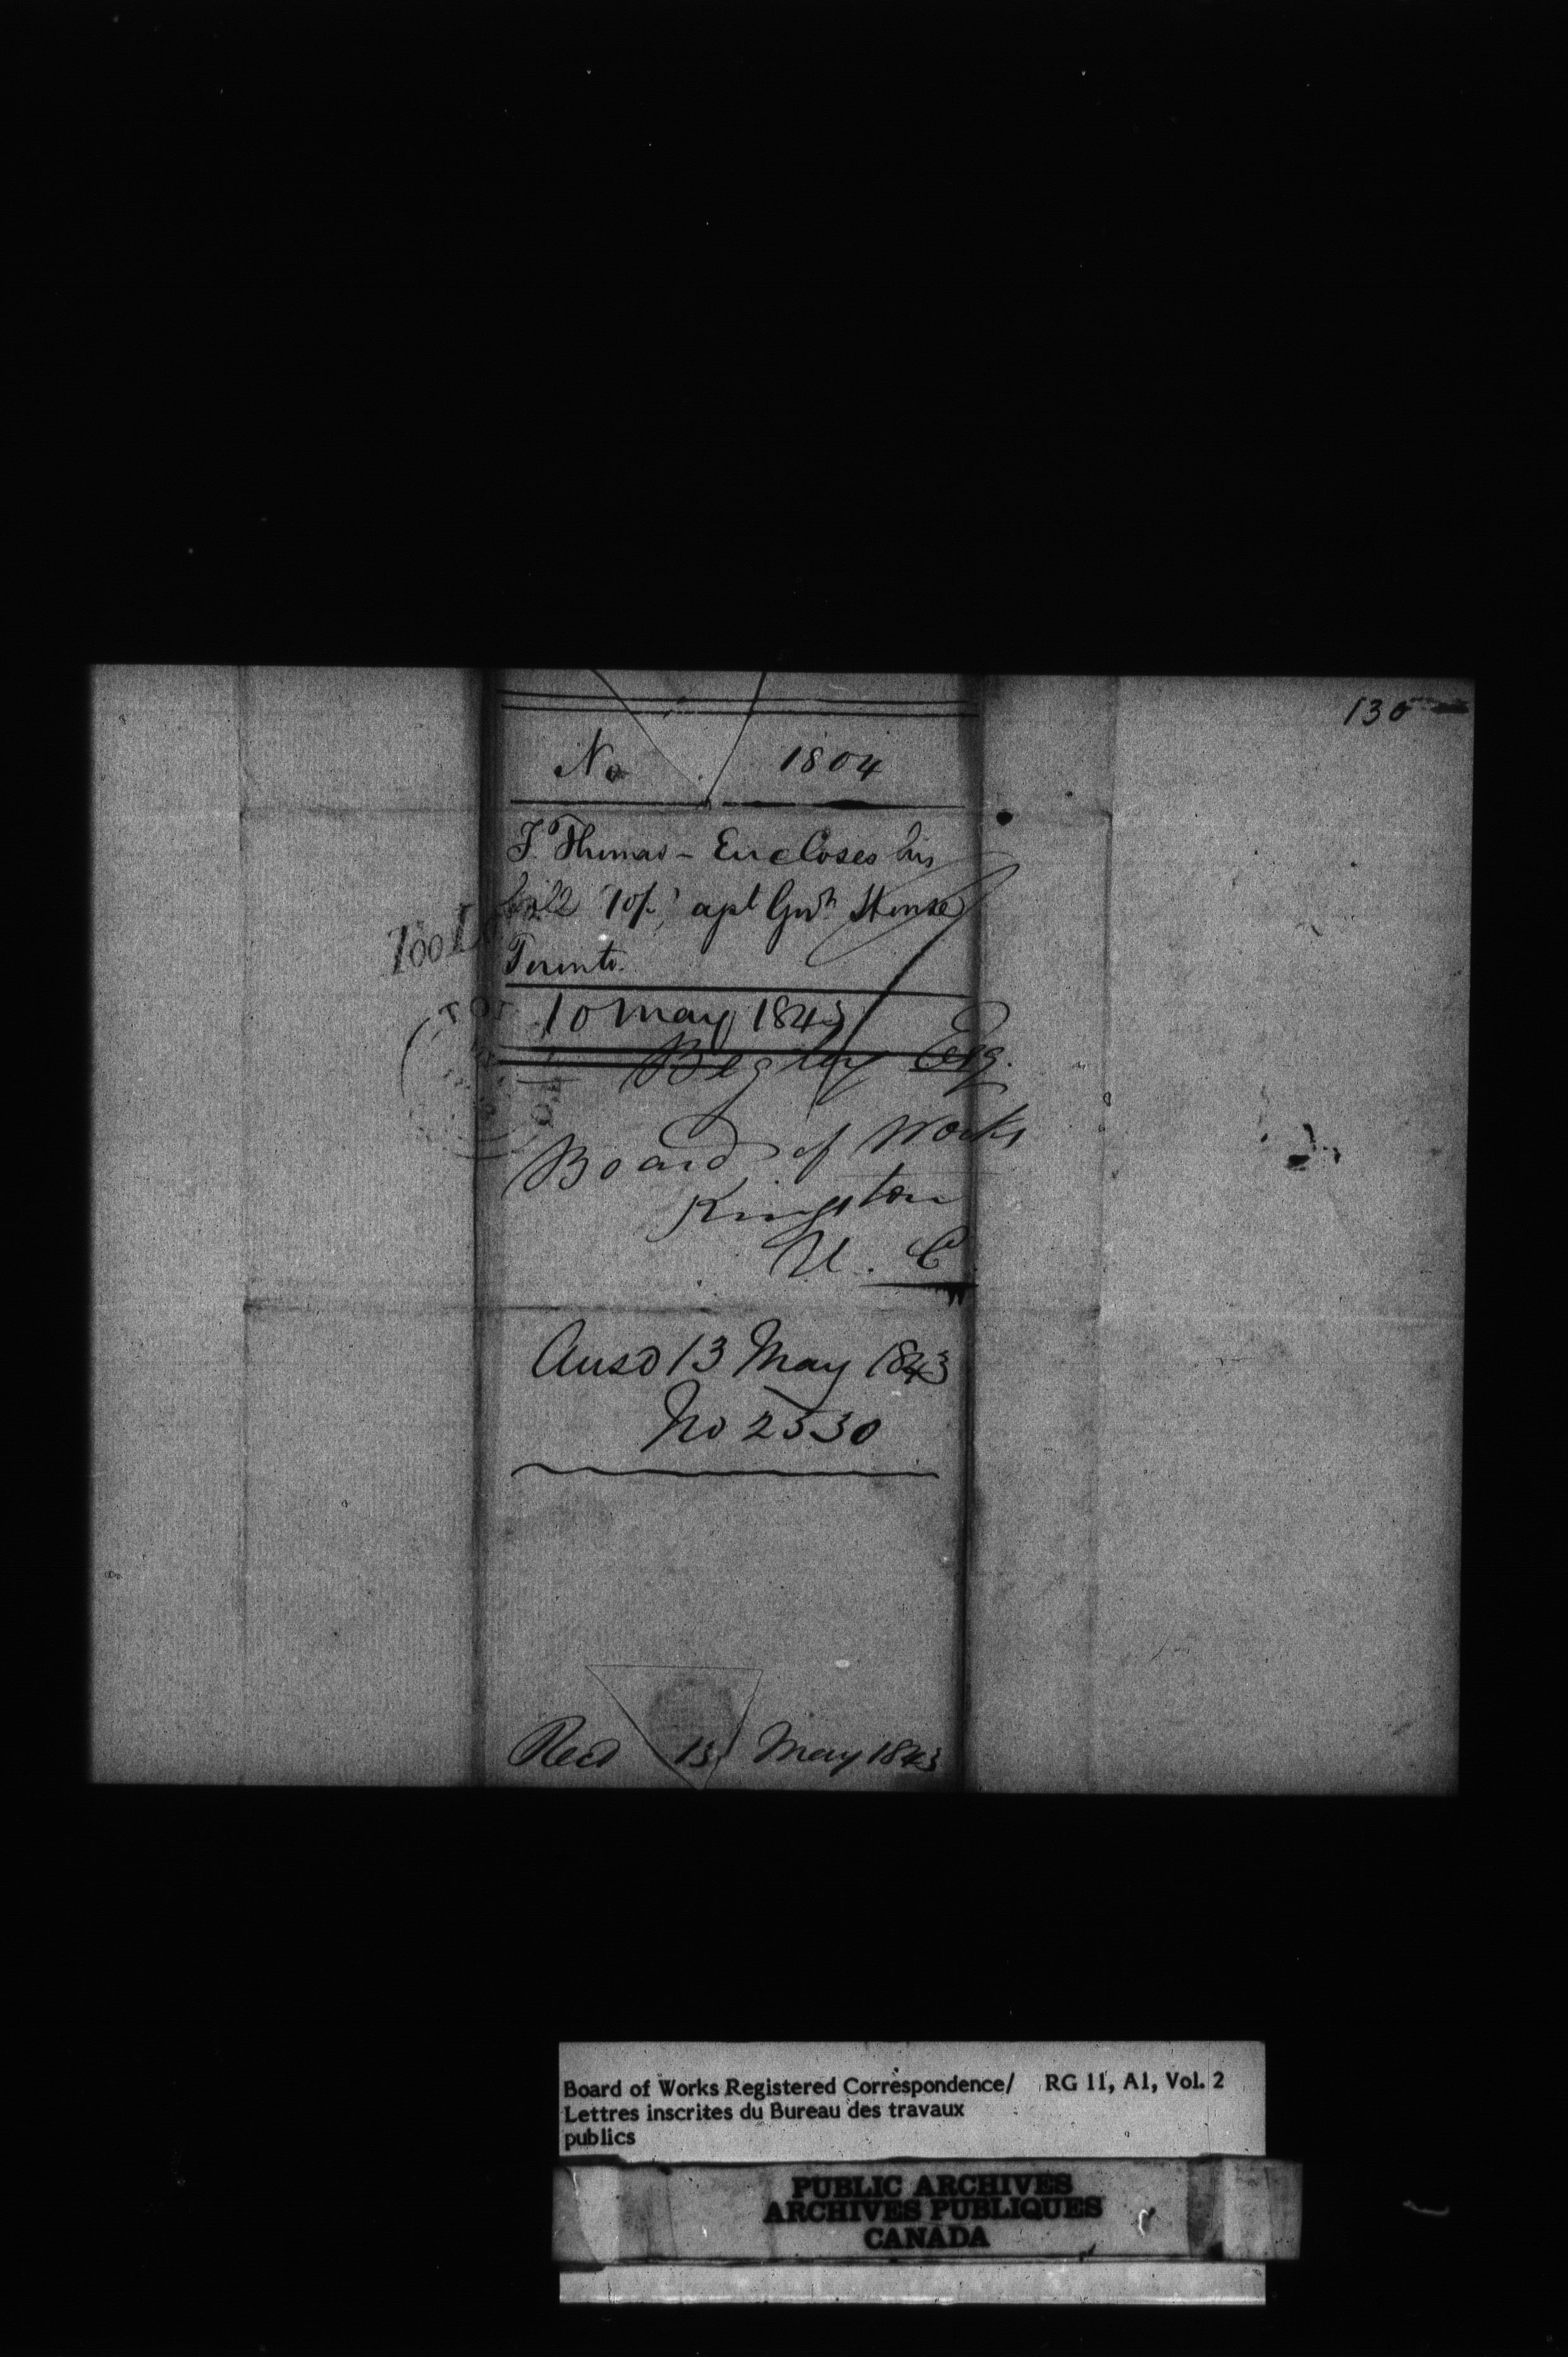 130
No 1804
T. Thomas - Encloses his
bill 70/. apt Govt House
Toronto.
10 May 1843
Begley Esq.
Board of Works
Kingston
U. C.
Ansd 13 May 1843
No 2530
Recd 13 May 1843
Board of Works Registered Correspondence/ RG 11, A1, Vol. 2
Lettres inscrites du Bureau des travaux
publics
PUBLIC ARCHIVES
ARCHIVES PUBLIQUES
CANADA